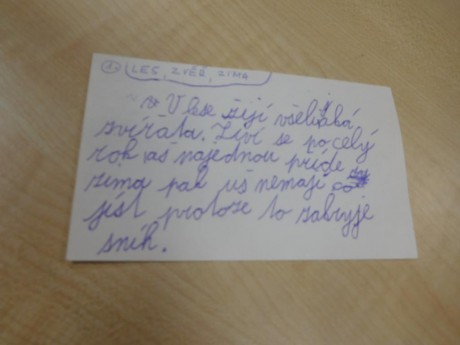 1. LES, ZVĚŘ, ZIMA
V lese žijí všelijaká
zvířata. Živí se po celý
rok aš najednou príde
zima pak uš nemají co
jíst protože to zakryje
sníh.